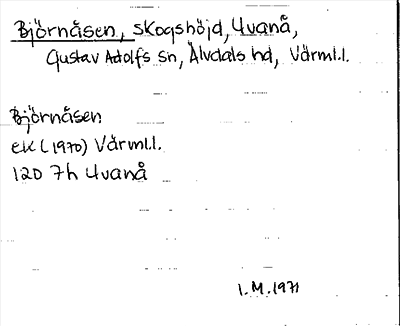 Björnåsen, skogshöjd, Uvanå,
Gustav Adolfs sn, Älvdals hd, Värml.l.
Björnåsen
EK (1970) Värml.l.
12D 7h Uvanå
I.M.1971